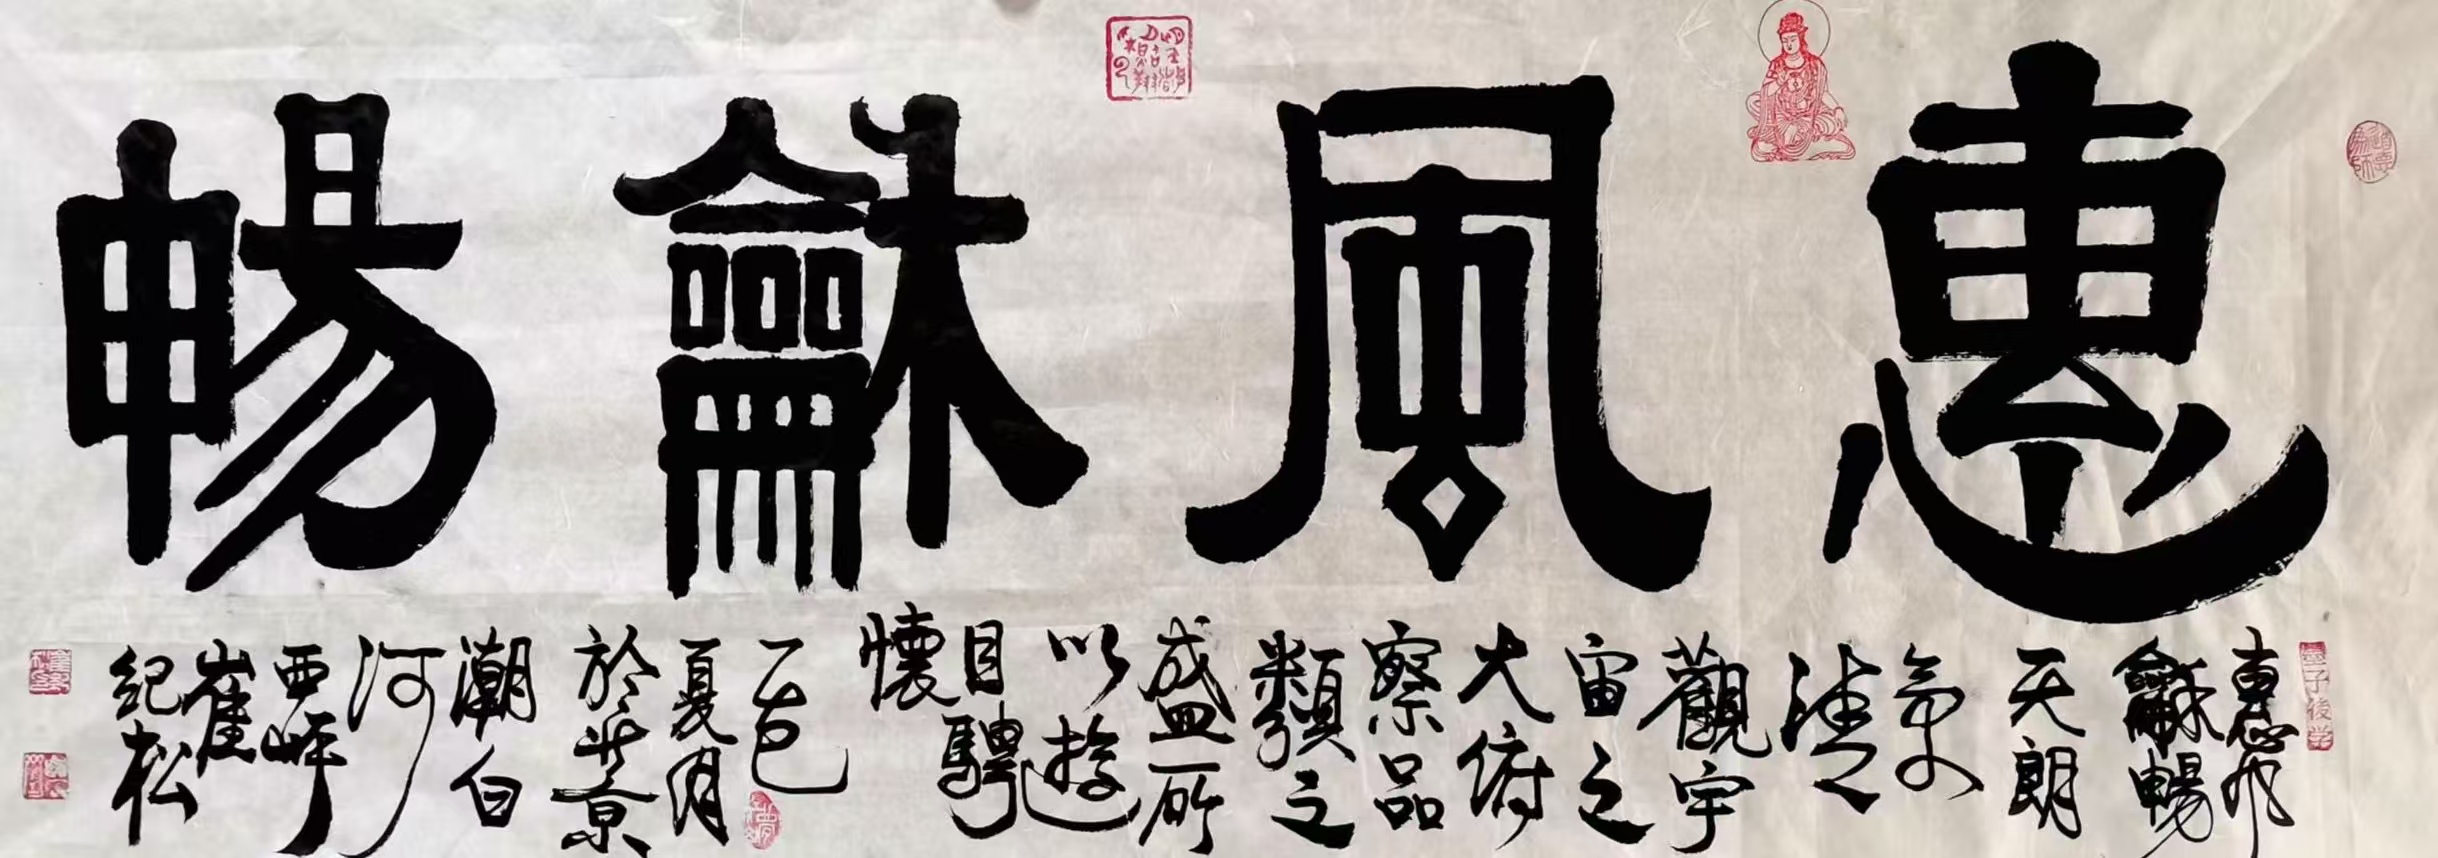 惠風龢暢
惠風
龢暢
天朗
氣
清
觀宇
宙之
大俯
察品
類之
盛所
以遊
目騁
懷
乙巳
夏月
於北京
潮白
河
西岸
崔
紀松